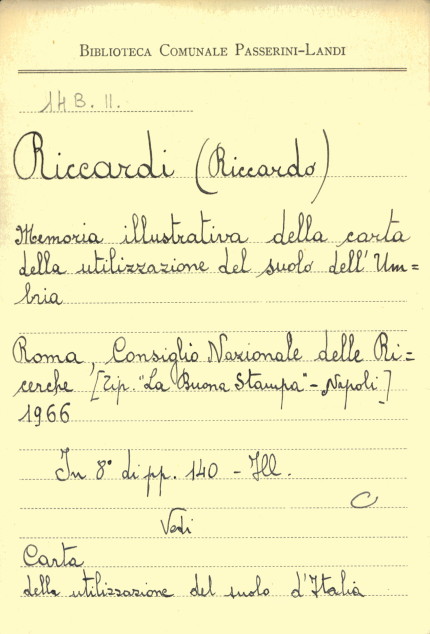 BIBLIOTECA COMUNALE PASSERINI-LANDI
14 B. 11.
Riccardi (Riccardo)
Memoria illustrativa della carta
della utilizzazione del suolo dell'Um=
bria
Roma, Consiglio Nazionale delle Ri=
cerche [Tip. "La Buona Stampa" - Napoli]
1966
In 8° di pp. 140 - Ill.
C
Vedi
Carta
della utilizzazione del suolo d'Italia